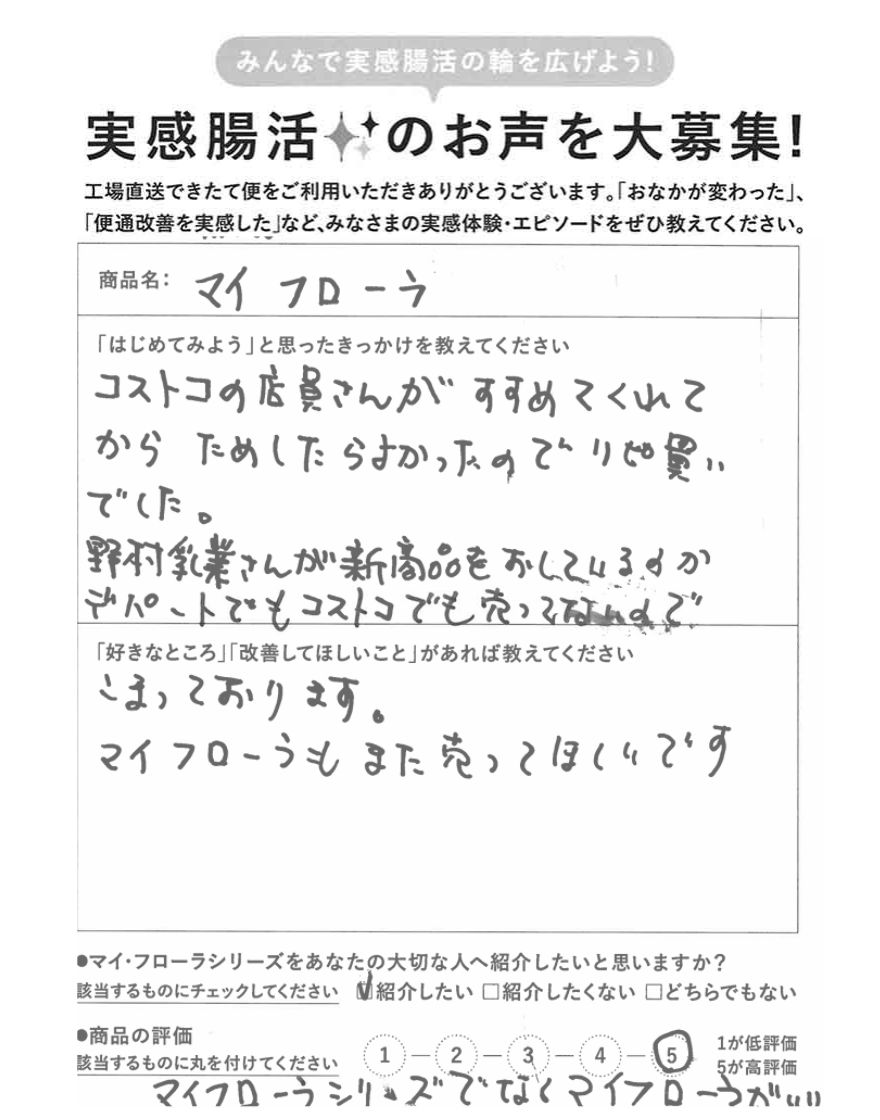 みんなで実感腸活の輪を広げよう!
実感腸活のお声を大募集!
工場直送できたて便をご利用いただきありがとうございます。「おなかが変わった」、
「便通改善を実感した」など、みなさまの実感体験・エピソードをぜひ教えてください。
商品名: マイフローラ
「はじめてみよう」と思ったきっかけを教えてください
コストコの店員さんがすすめてくれて
から ためしたらよかったのでリピ買い
でした。
野村乳業さんが新商品をおしているのか
デパートでもコストコでも売ってないので
「好きなところ」「改善してほしいこと」があれば教えてください
こまっております。
マイフローラもまた売ってほしいです
●マイ・フローラシリーズをあなたの大切な人へ紹介したいと思いますか?
該当するものにチェックしてください ☑紹介したい □紹介したくない □どちらでもない
●商品の評価
該当するものに丸を付けてください 1 — 2 — 3 — 4 — 5 1が低評価
5が高評価
マイフローラシリーズでなくマイフローラがいい